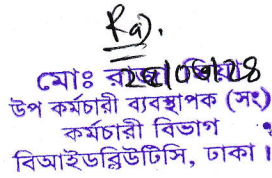 মোঃ
উপ কর্মচারী ব্যবস্থাপক (সং)
কর্মচারী বিভাগ
বিআইডব্লিউটিসি, ঢাকা।